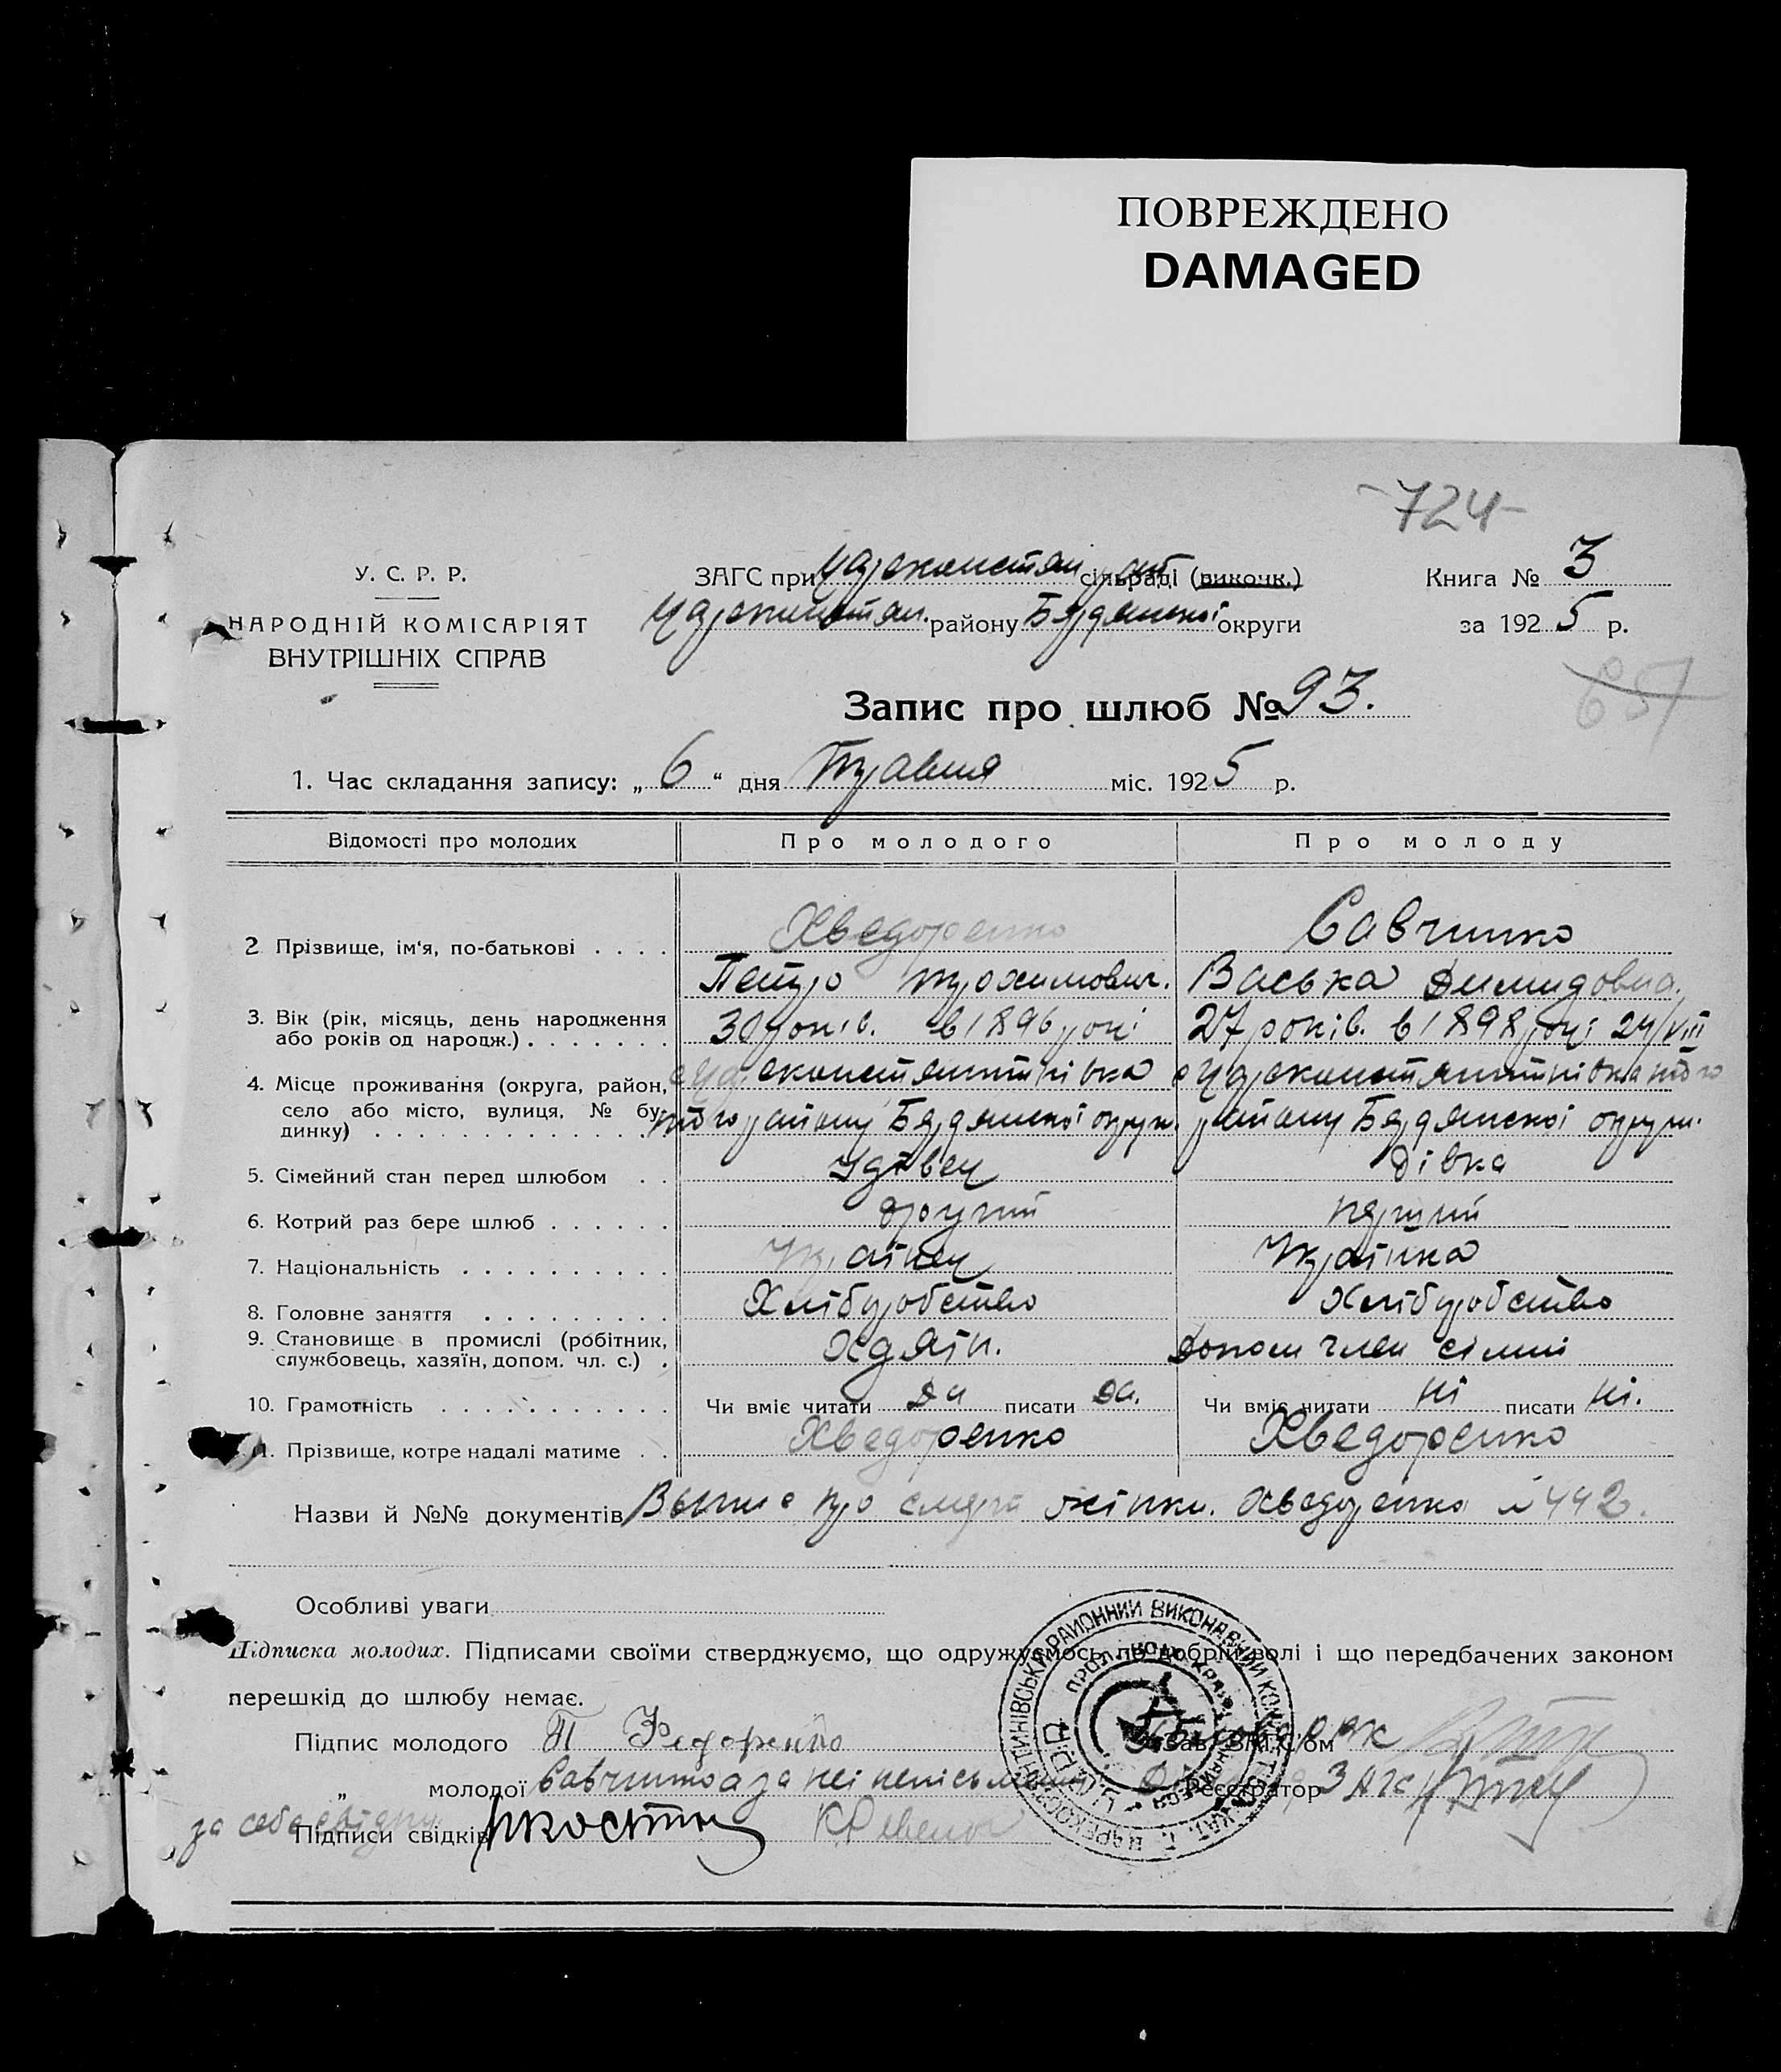 ПОВРЕЖДЕНО
DAMAGED
-724-
У. С. Р. Р.
НАРОДНІЙ КОМІСАРІЯТ
ВНУТРІШНІХ СПРАВ
ЗАГС при Цареконстан. сільраді (викочк.)
Цареконстан. району Бердянської округи
Книга № 3
за 1925 р.
651
Запис про шлюб № 93.
1. Час складання запису: „ 6 “ дня Травня міс. 1925 р.
Відомості про молодих Про молодого Про молоду
2 Прізвище, ім'я, по-батькові . . . . Хведоренко Савченко
Петро Трохимович. Васька Демидовна.
3. Вік (рік, місяць, день народження
або років од народж.) . . . . . . . 30 років. в 1896 році 27 років. в 1898 році 24/VIII
4. Місце проживання (округа, район,
село або місто, вулиця, № бу-
динку) . . . . . . . . . . . . . .
с Цареконстянтинівка с Цареконстянтинівка того
того району Бердянської округи. району Бердянської округи.
5. Сімейний стан перед шлюбом . . Удівец дівка
6. Котрий раз бере шлюб . . . . . . другий перший
7. Національність . . . . . . . . . . Українец Українка
8. Головне заняття . . . . . . . . . Хліборобство Хліборобство
9. Становище в промислі (робітник,
службовець, хазяїн, допом. чл. с.) . Хазяїн. допом член сімьї
10. Грамотність . . . . . . . . . . . Чи вміє читати да писати да. Чи вміє читати ні писати ні.
11. Прізвище, котре надалі матиме . . Хведоренко Хведоренко
Назви й №№ документів Выпис про смерть жінки. Хведоренко № 442.
Особливі уваги
Підписка молодих. Підписами своїми стверджуємо, що одружуємось по добрій волі і що передбачених законом
перешкід до шлюбу немає.
Підпис молодого П Федоренко
Зав. ЗАГС'ом
„ молодої Савченко а за неі неписьменну
Реєстратор Загс
за себе свідку
Підписи свідків